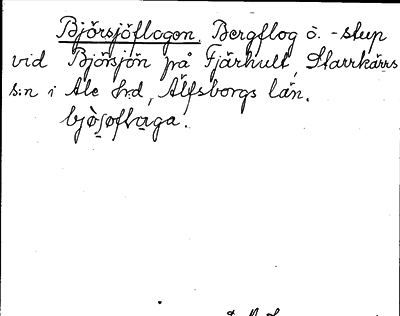 Björsjöflogen. Bergflog o. -stup
vid Björsjön på Fjärhult, Starrkärrs
s:n i Ale hrd, Älfsborgs län.
bjòsoflaga.